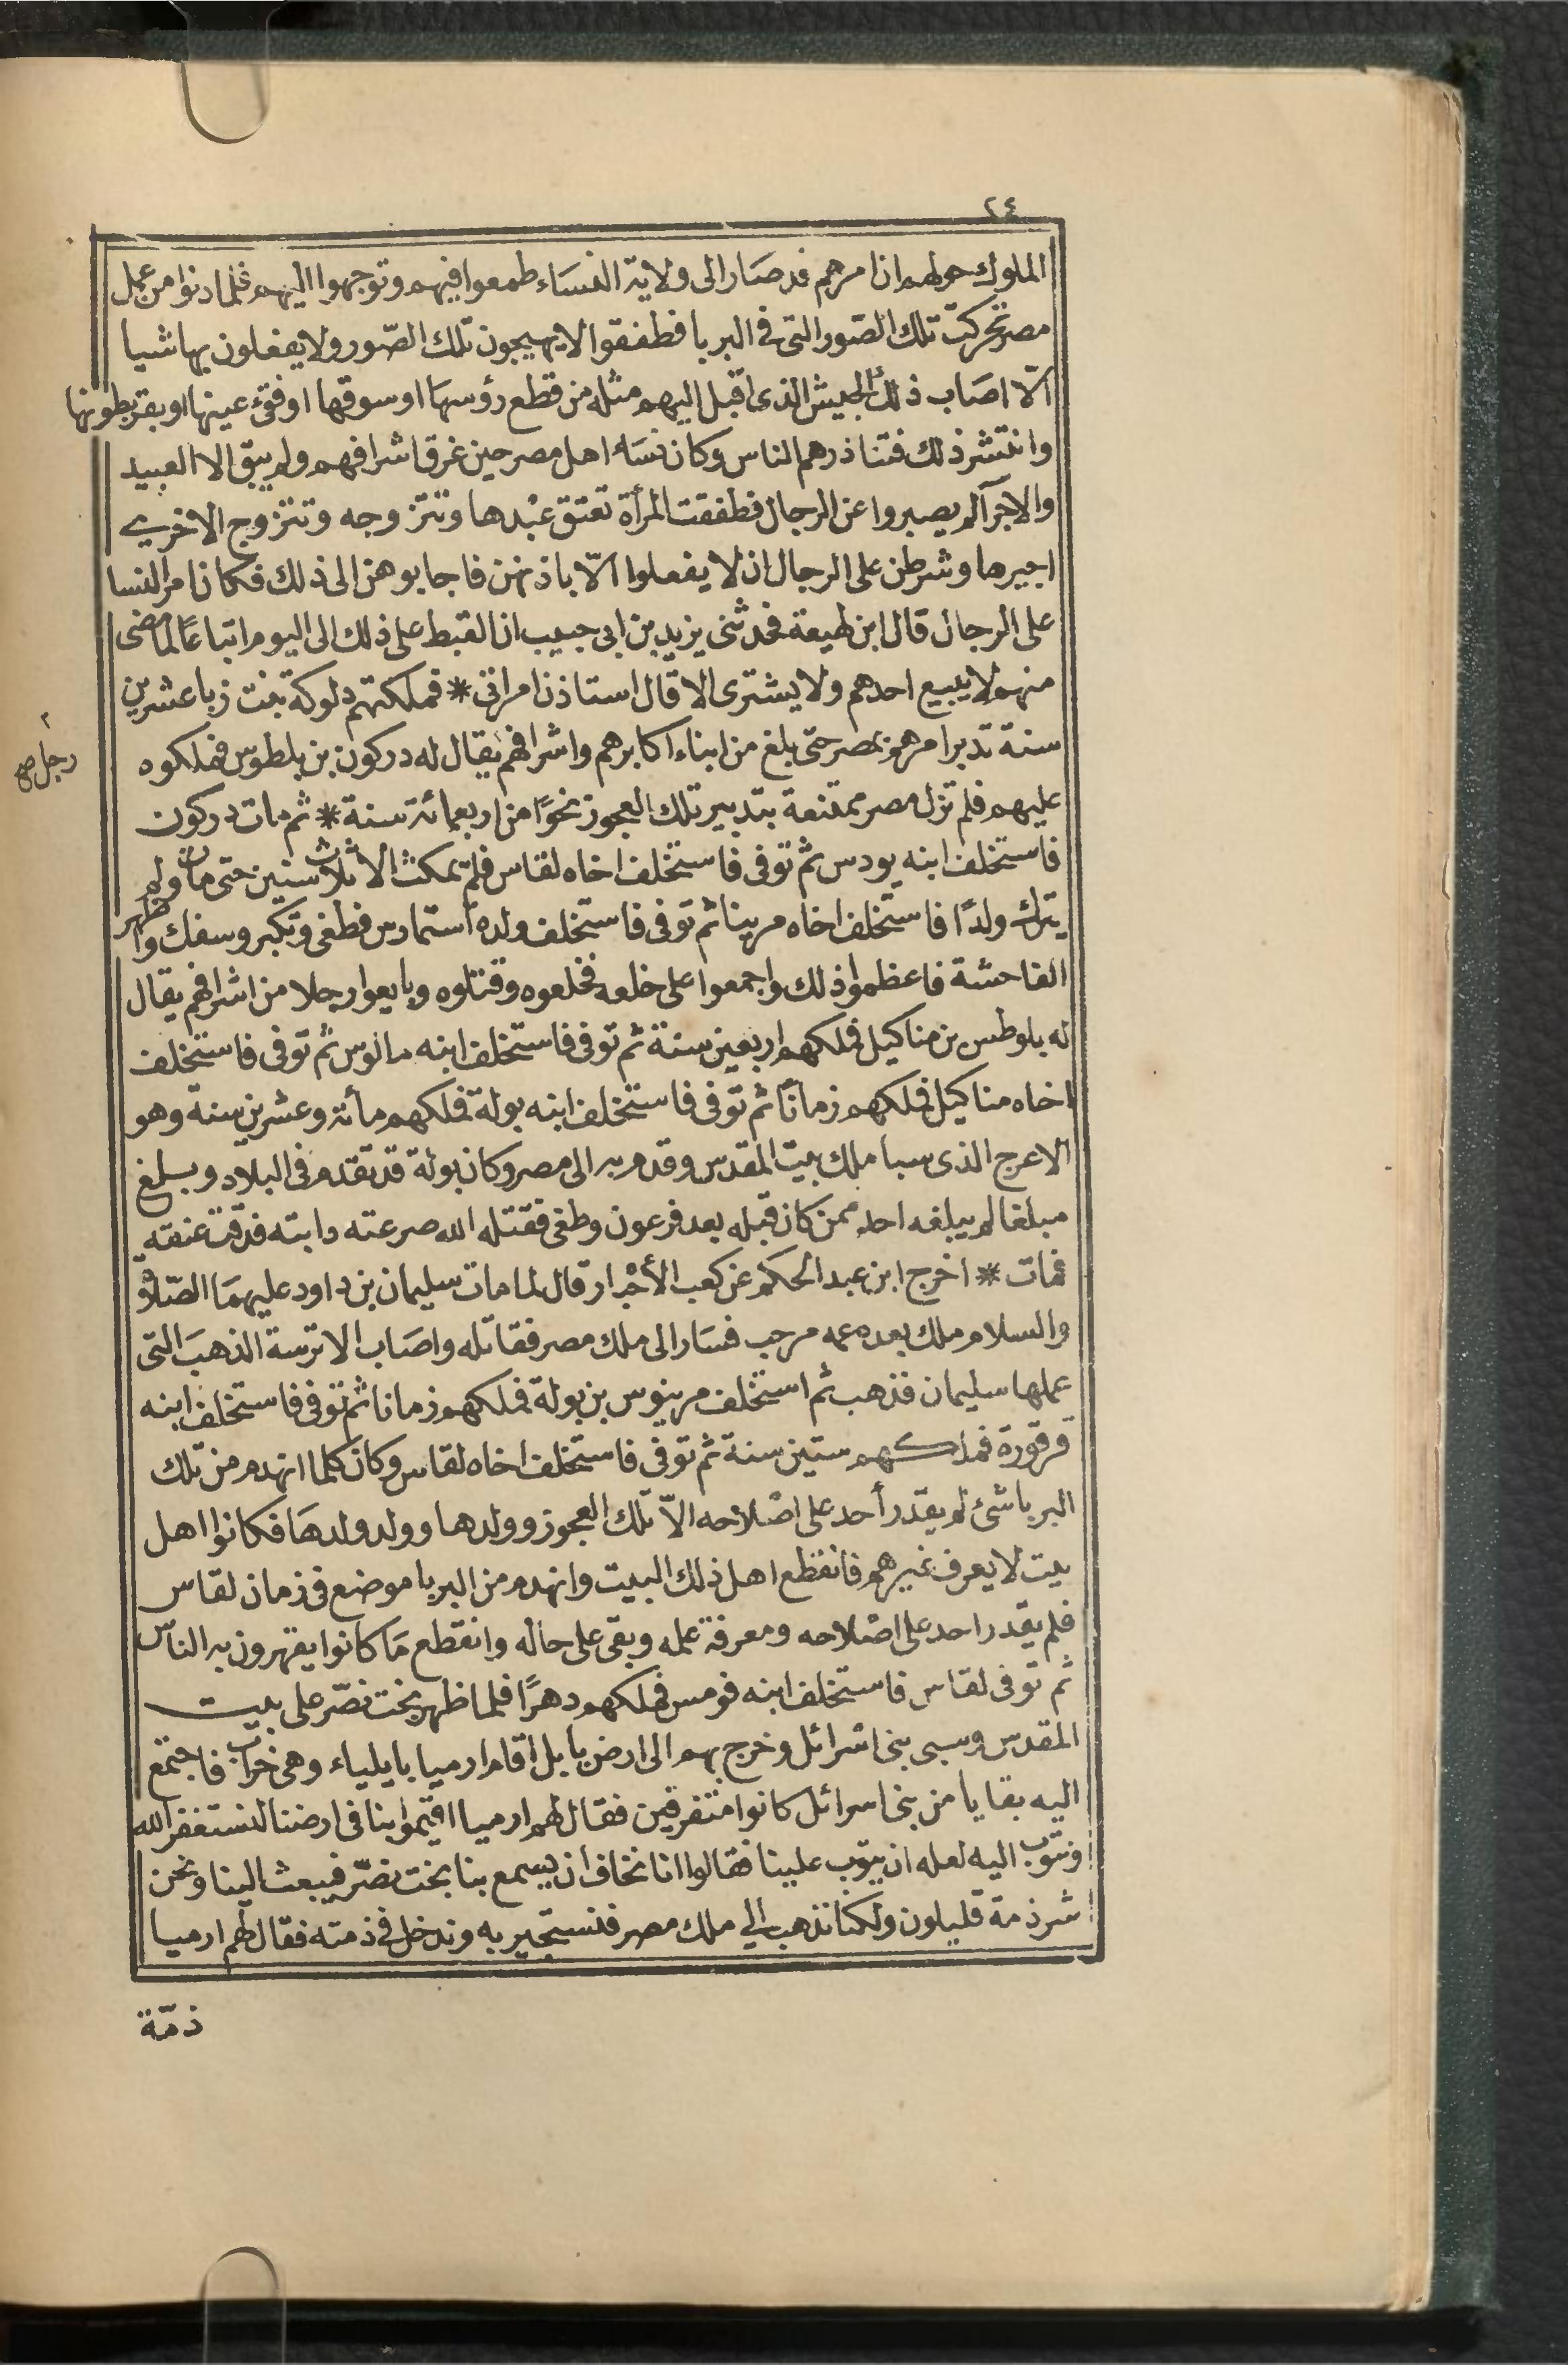 ٢٤
الملوك حولهم ان امرهم قد صَار الى ولاية النسَاء طمعوا فيهم وتوجهوا اليهم فلما دنوا من عمل
مصر تحركت تلك الصّور التى فى البربا فطفقوا لا يهيجون تلك الصّور ولا يفعلون بها شيا
الّا اصَاب ذلك الجيش الذى اقبل اليهم مثله من قطع رؤسهَا او سوقها او فقئ عينها او بقر بطونها
وانتشر ذلك فتناذرهم الناس وكان نسَاء اهل مصر حين غرق اشرافهم ولم يبق الا العبيد
والاجرآ لم يصبروا عن الرجال فطفقت المرأة تعتق عبْدها وتتزوجه وتتزوج الاخرى
اجيرها وشرطن على الرجال ان لا يفعلوا الّا باذنهن فاجابوهن الى ذلك فكان امر النسا
على الرجال قال ابن لهيعة فحدثنى يزيد بن ابى حبيب ان القبط على ذلك الى اليوم اتباعًا لما مضى
منهم لا يبيع احدهم ولا يشترى الا قال استاذن امراتى * فملكتهم دلوكة بنت زبا عشرين
سنة تدبر امرهم بمصر حتى بلغ من ابناء اكابرهم واشرافهم يقال له دركون بن بلطوس فملكوه
رجل صح
عليهم فلم تزل مصر ممتنعة بتدبير تلك العجوز نحوًا من اربعمائة سنة * ثم مات دركون
فاستخلف ابنه يودس ثم توفى فاستخلف اخاه لقاس فلم يمكث الا ثلاث سنين حتى مات ولم
يترك ولدًا فاستخلف اخاه مرينا ثم توفى فاستخلف ولده استمادس فطغى وتكبر وسفك واظهر
الفاحشة فاعظموا ذلك واجمعوا على خلعه فخلعوه وقتلوه وبايعوا رجلا من اشرافهم يقال
له بلوطس بن مناكيل فملكهم اربعين سنة ثم توفى فاستخلف ابنه مالوس ثم توفى فاستخلف
اخاه مناكيل فملكهم زمانًا ثم توفى فاستخلف ابنه بولة فملكهم مائة وعشرين سنة وهو
الاعرج الذى سبا ملك بيت المقدس وقدم به الى مصر وكان بولة قد تقدم فى البلاد وبلغ
مبلغا لم يبلغه احد ممن كان قبله بعد فرعون وطغى فقتله الله صرعته دابته فدقت عنقه
فمات * اخرج ابن عبد الحكم عن كعب الأحْبار قال لما مات سليمان بن داود عليهمَا الصّلاة
والسلام ملك بعده عمه مرحب فسَار الى ملك مصر فقاتله واصَاب الاترسة الذهبَ التى
عملها سليمان فذهب ثم استخلف مرينوس بن بولة فملكهم زمانا ثم توفى فاستخلف ابنه
قرقورة فملكهم ستين سنة ثم توفى فاستخلف اخاه لقاس وكان كلما انهدم من تلك
البربا شئ لم يقدر أحد على اصْلاحه الاّ تلك العجوز وولدها وولد ولدهَا فكانوا اهل
بيت لا يعرف غيرهم فانقطع اهل ذلك البيت وانهدم من البربا موضع فى زمان لقاس
فلم يقدر احد على اصْلاحه ومعرفة عمله وبقى على حاله وانقطع مَا كانوا يقهرون به الناس
ثم توفى لقاس فاستخلف ابنه قومس فملكهم دهرًا فلما ظهر بخت نصّر على بيت
المقدس وسبى بنى اسْرائل وخرج بهم الى ارض بابل اقام ارميا بايلياء وهى خراب فاجتمع
اليه بقايا من بنى اسرائل كانوا متفرقين فقال لهم ارميا اقيموا بنا فى ارضنا لنستغفر الله
ونتوب اليه لعله ان يتوب علينا فقالوا انا نخاف ان يسمع بنا بخت نصّر فيبعث الينا ونحن
شرذمة قليلون ولكنا نذهب الي ملك مصر فنستجير به وندخل فى ذمته فقال لهم ارميا
ذمّة